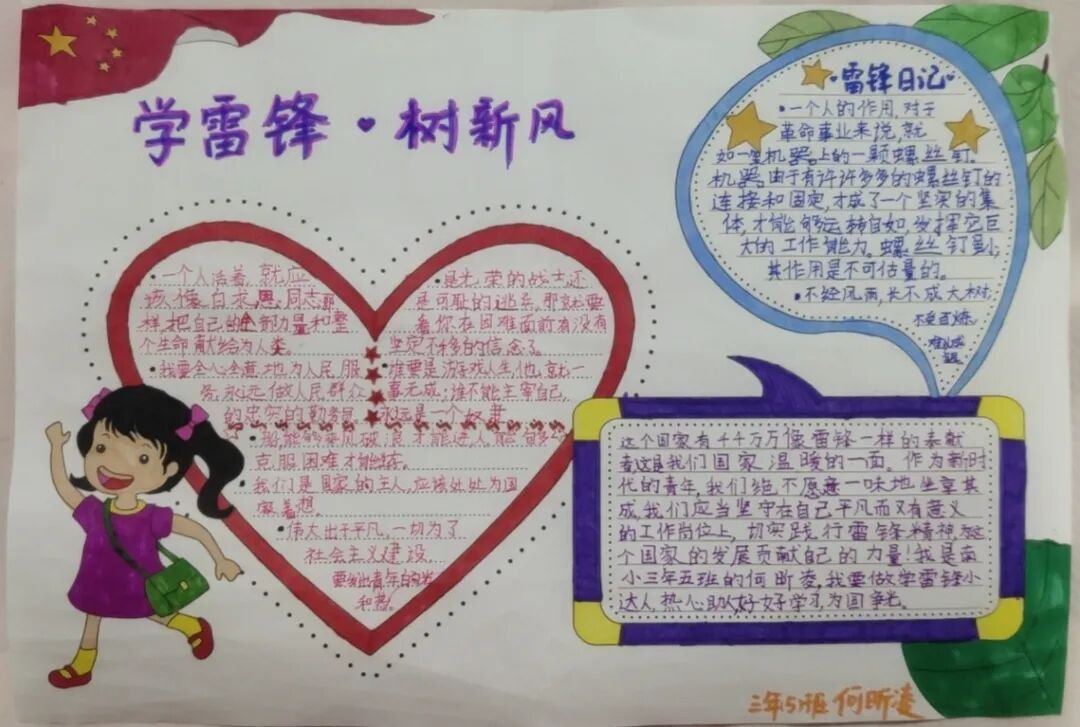 学雷锋·树新风
雷锋日记
·一个人的作用,对于
革命事业来说,就
如一架机器上的一颗螺丝钉。
机器由于有许许多多的螺丝钉的
连接和固定,才成了一个坚实的集
体,才能够运转自如,发挥它巨
大的工作能力。螺丝钉虽小,
其作用是不可估量的。
·不经风雨,长不成大树,
不受百炼,
难以成
钢
·一个人活着,就应
该像白求恩同志那
样,把自己的全部力量和整
个生命献给为人类。
·我要全心全意地为人民服
务,永远做人民群众
的忠实的勤务员
·船能够乘风破浪才能进,人能够
克服困难才能
·我们是国家的主人,应该处处为国
家着想。
·伟大出于平凡,一切为了
社会主义建设,
要发出青年的光
和热。
·是光荣的战士还
是可耻的逃兵,那就要
看你在困难面前有没有
坚定不移的信念了。
·谁要是游戏人生,他就一
事无成;谁不能主宰自己,
永远是一个奴隶
这个国家有千千万万像雷锋一样的奉献
者这是我们国家温暖的一面。作为新时
代的青年,我们绝不愿意一味地坐享其
成,我们应当坚守在自己平凡而又有意义
的工作岗位上,切实践行雷锋精神,为这
个国家的发展贡献自己的力量!我是南
小三年五班的何昕凌,我要做学雷锋小
达人,热心助人,好好学习,为国争光。
三年5班 何昕凌